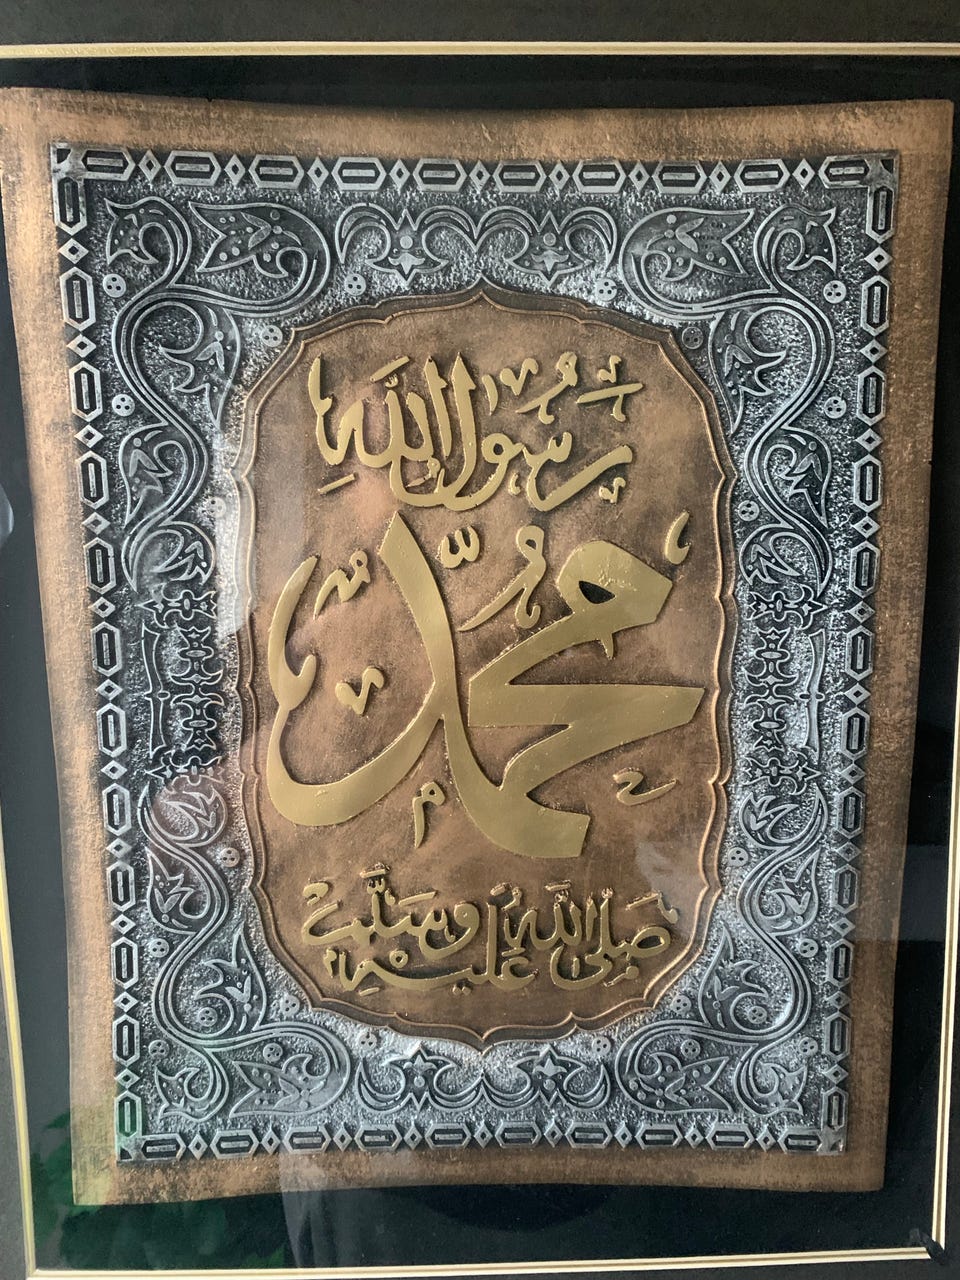 رَسُولُ اللهِ
مُحَمَّد
صَلَّى اللهُ عَلَيْهِ وَسَلَّم